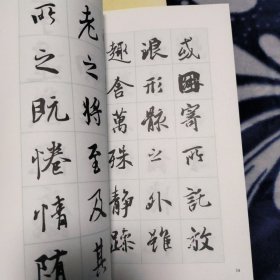 或因寄所託放
浪形骸之外雖
趣舍萬殊靜躁
老之將至及其
所之既惓情隨